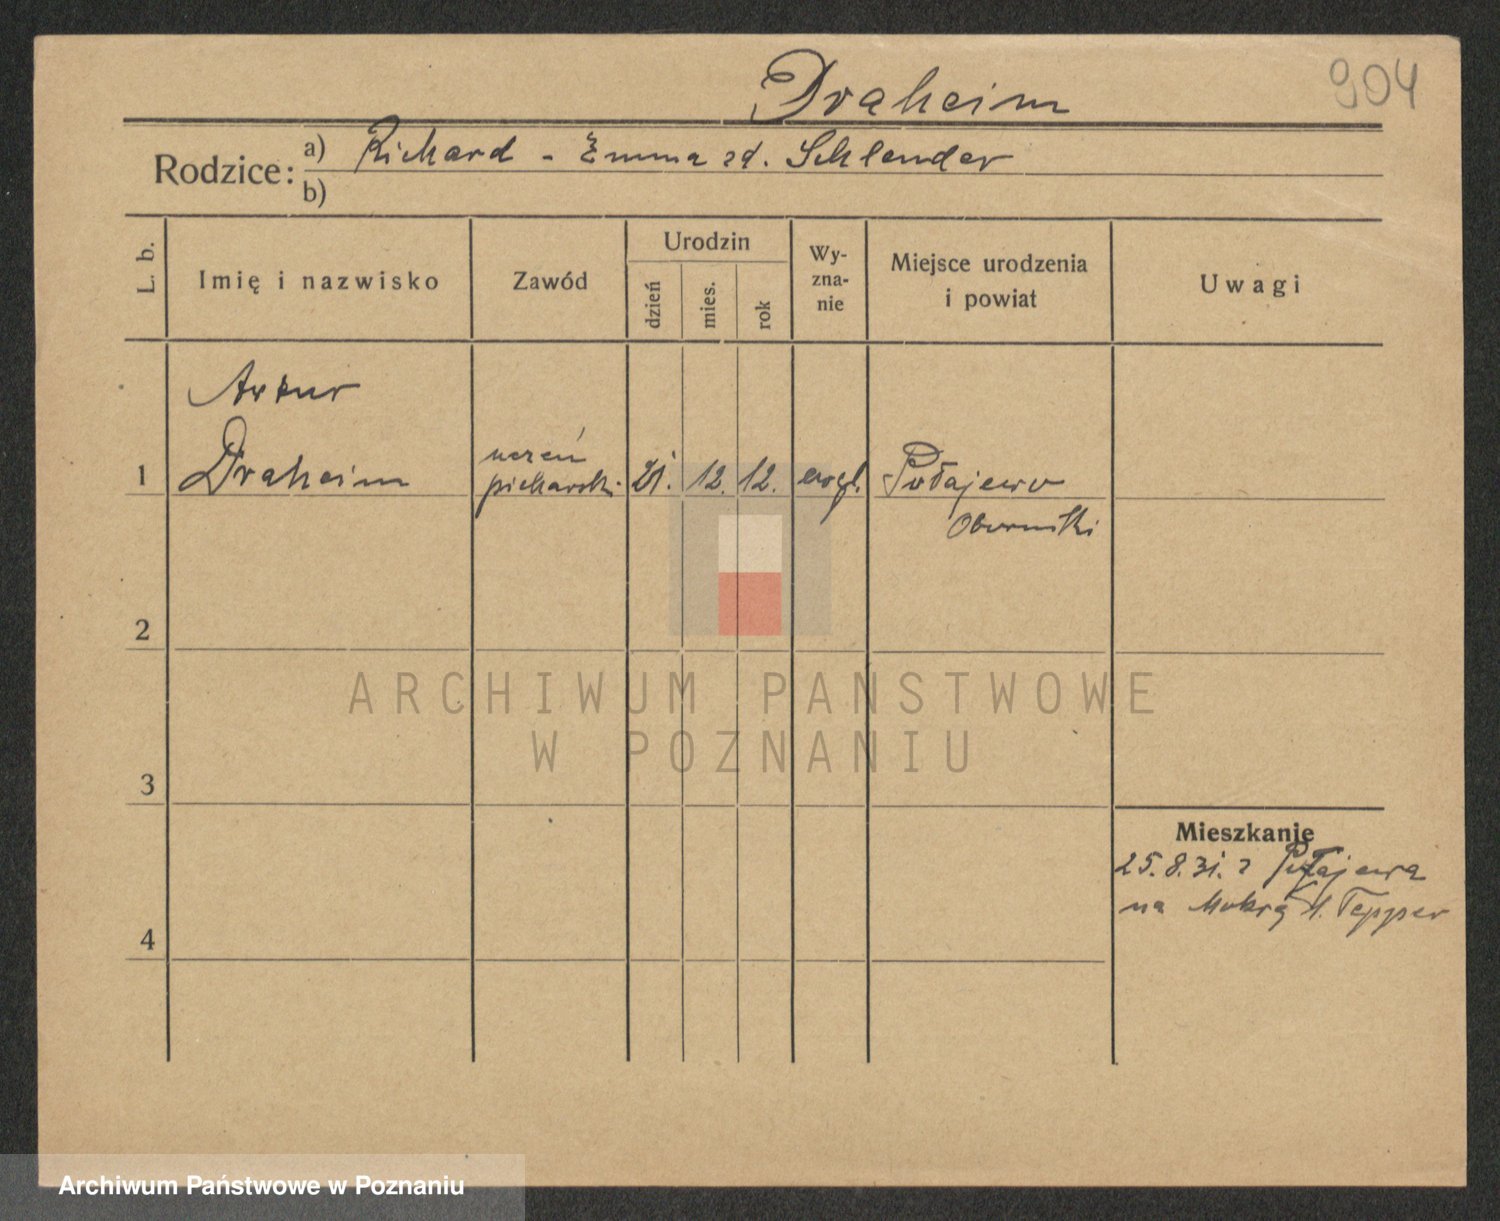 Draheim
904
Rodzice: a) Richard - Emma zd. Schlender
b)
L. b.
Imię i nazwisko
Zawód
Urodzin
dzień
mies.
rok
Wy-
zna-
nie
Miejsce urodzenia
i powiat
Uwagi
Artur
1 Draheim
uczeń
piekarski
21. 12. 12.
ewgl.
Połajewo
Oborniki
2
3
4
ARCHIWUM PAŃSTWOWE
W POZNANIU
Mieszkanie
25.8.31. z Połajewa
na Mokrą 1. Tepper
Archiwum Państwowe w Poznaniu